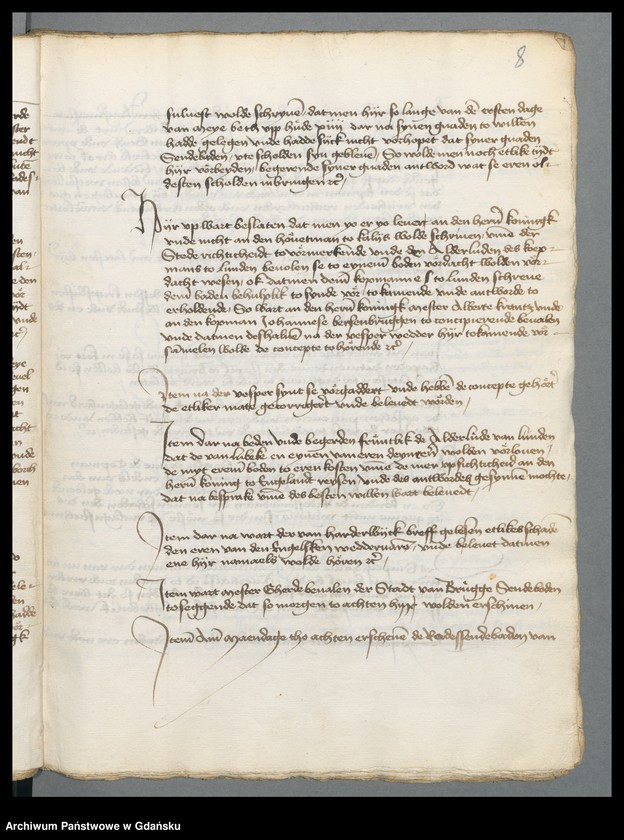 8
suluest wolde schryuen datmen hyr so lange van den ersten dage
van meye beth vpp hude xiiij dar na synen gnaden to willen
hadde gelegen vnde hadde sick nicht vorhopet dat syner gnaden
Sendeboden vte scholden syn gebleuen So wolde men noch etlike tijdt
hyr vorbeyden begerende syner gnaden antword wat se eren ol-
desten scholden inbringen etc
Hyr vp wart beslaten dat men yo er yo leuer an den hern koningk
vnde nicht an den houetman to kalys wolde schriuen vnde der
Stede richticheidt to vormerkende vnde den Alderluden des kop-
mans to lunden beuolen se to eynem boden vordacht wolden vor-
dacht wesen ok datmen dem kopmanne to lunden schreue
dem boden behulplik to synde vor to kamende vnde antworde to
erholdende So wart an den hern koningk mester Alberte krantz vnde
an den kopman Johannese bersenbruggen to concipierende beualen
vnde datmen deshaluen na der vesper wedder hyr tokamende vor-
samelen wolde de concepte to horende etc
Item na der vesper synt se vorgaddert vnde hebben de concepte gehort
de etliker mate gecorrigert vnde beleuedt worden
Item dar na beden vnde begerden fruntlik de Alderlude van lunden
dat de van lubeke en eynen van eren deynren wolden vorlouen
de myt erem boden to eren kosten vmme de mer vpsichticheit an den
hern koning to Engelandt reysen vnde des antwordes gesynne mochte
dat na besprake vmme des besten willen wart beleuedt
Item dar na wart der van harderwyck breff gelesen etlikes schaden
den eren van den Engelsken weddervaren vnde beleuet datmen
ene hyr namaels wolde horen etc
Item wart mester Gherde beualen der Stadt van Brugge Sendeboden
to seggende dat so morgen to achten hyr wolden erschinen
Item Am Maendage tho achten erschenen de Radessendebaden van
Archiwum Państwowe w Gdańsku